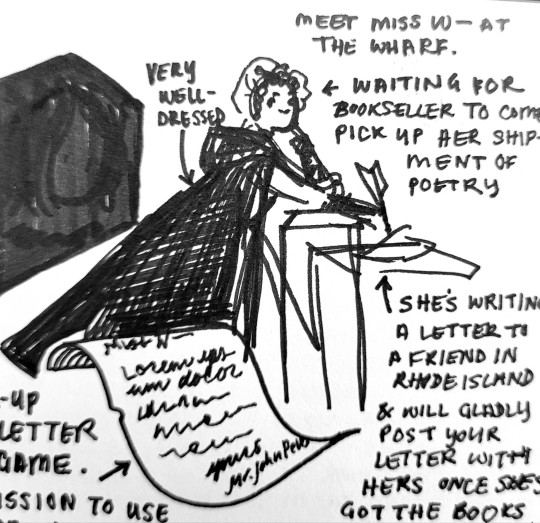 MEET MISS W — AT
THE WHARF.
VERY
WELL-
DRESSED
← WAITING FOR
BOOKSELLER TO COME
PICK UP HER SHIP-
MENT OF
POETRY
SHE'S WRITING
A LETTER TO
A FRIEND IN
RHODE ISLAND
& WILL GLADLY
POST YOUR
LETTER WITH
HERS ONCE SHE'S
GOT THE BOOKS
Lorem ips
um dolor
yours
Mr. John
-UP
LETTER
GAME.
MISSION TO USE